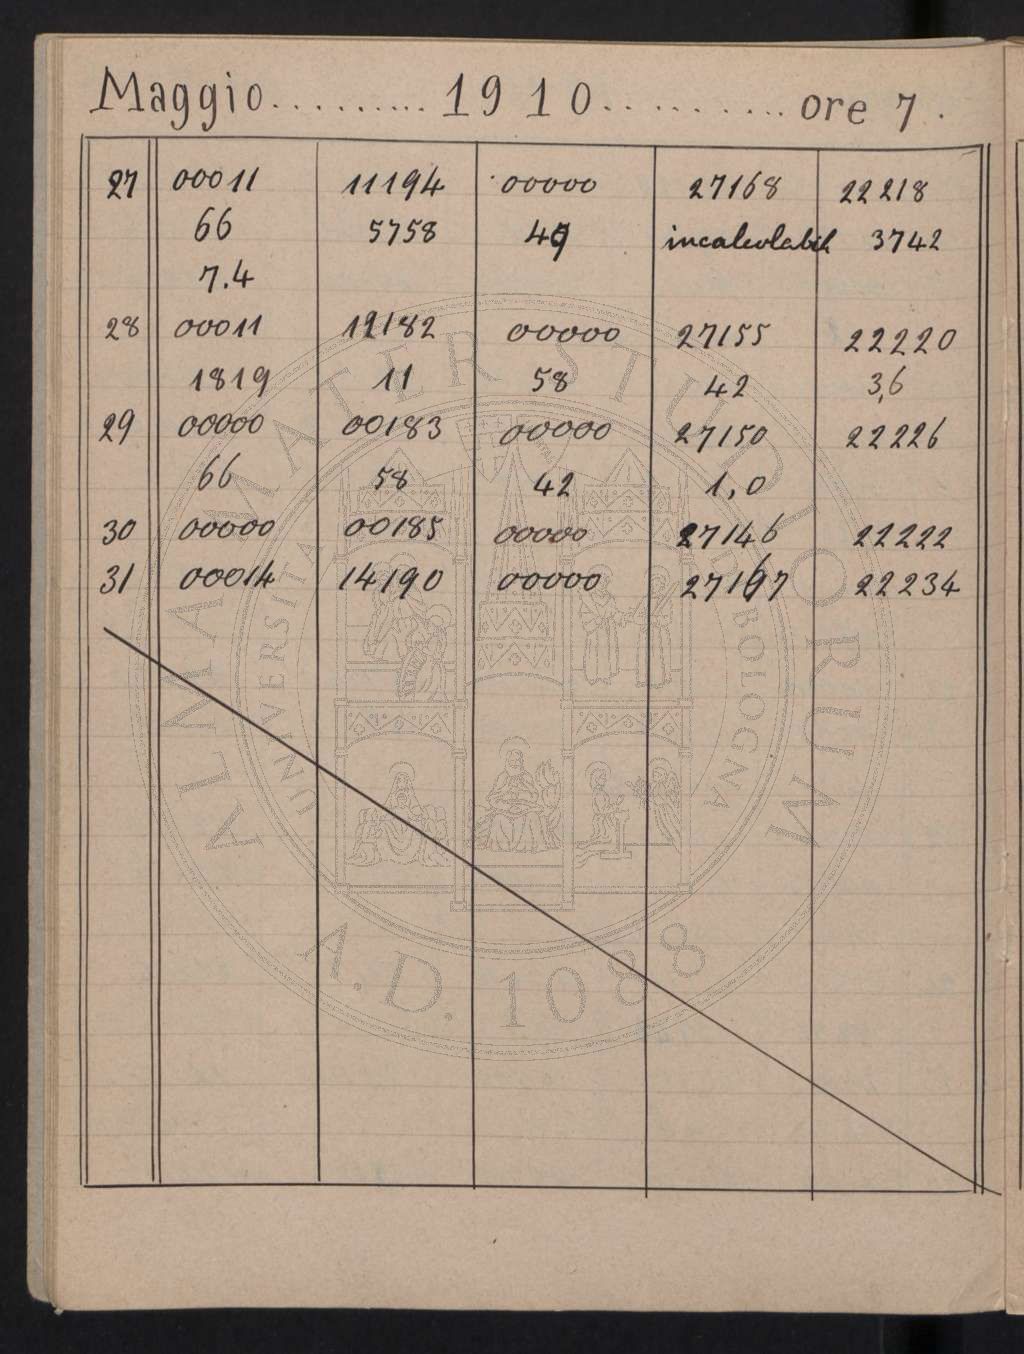 Maggio.......... 1910........... ore 7.
27 00011 11194 00000 27168 22218
66 5758 49 incalcolabili 3742
7.4
28 00011 12182 00000 27155 22220
1819 11 58 42 3,6
29 00000 00183 00000 27150 22226
66 58 42 1,0
30 00000 00185 00000 27146 22222
31 00014 14190 00000 27167 22234
ALMA MATER STUDIORUM
UNIVERSITÀ DI BOLOGNA
A.D. 1088